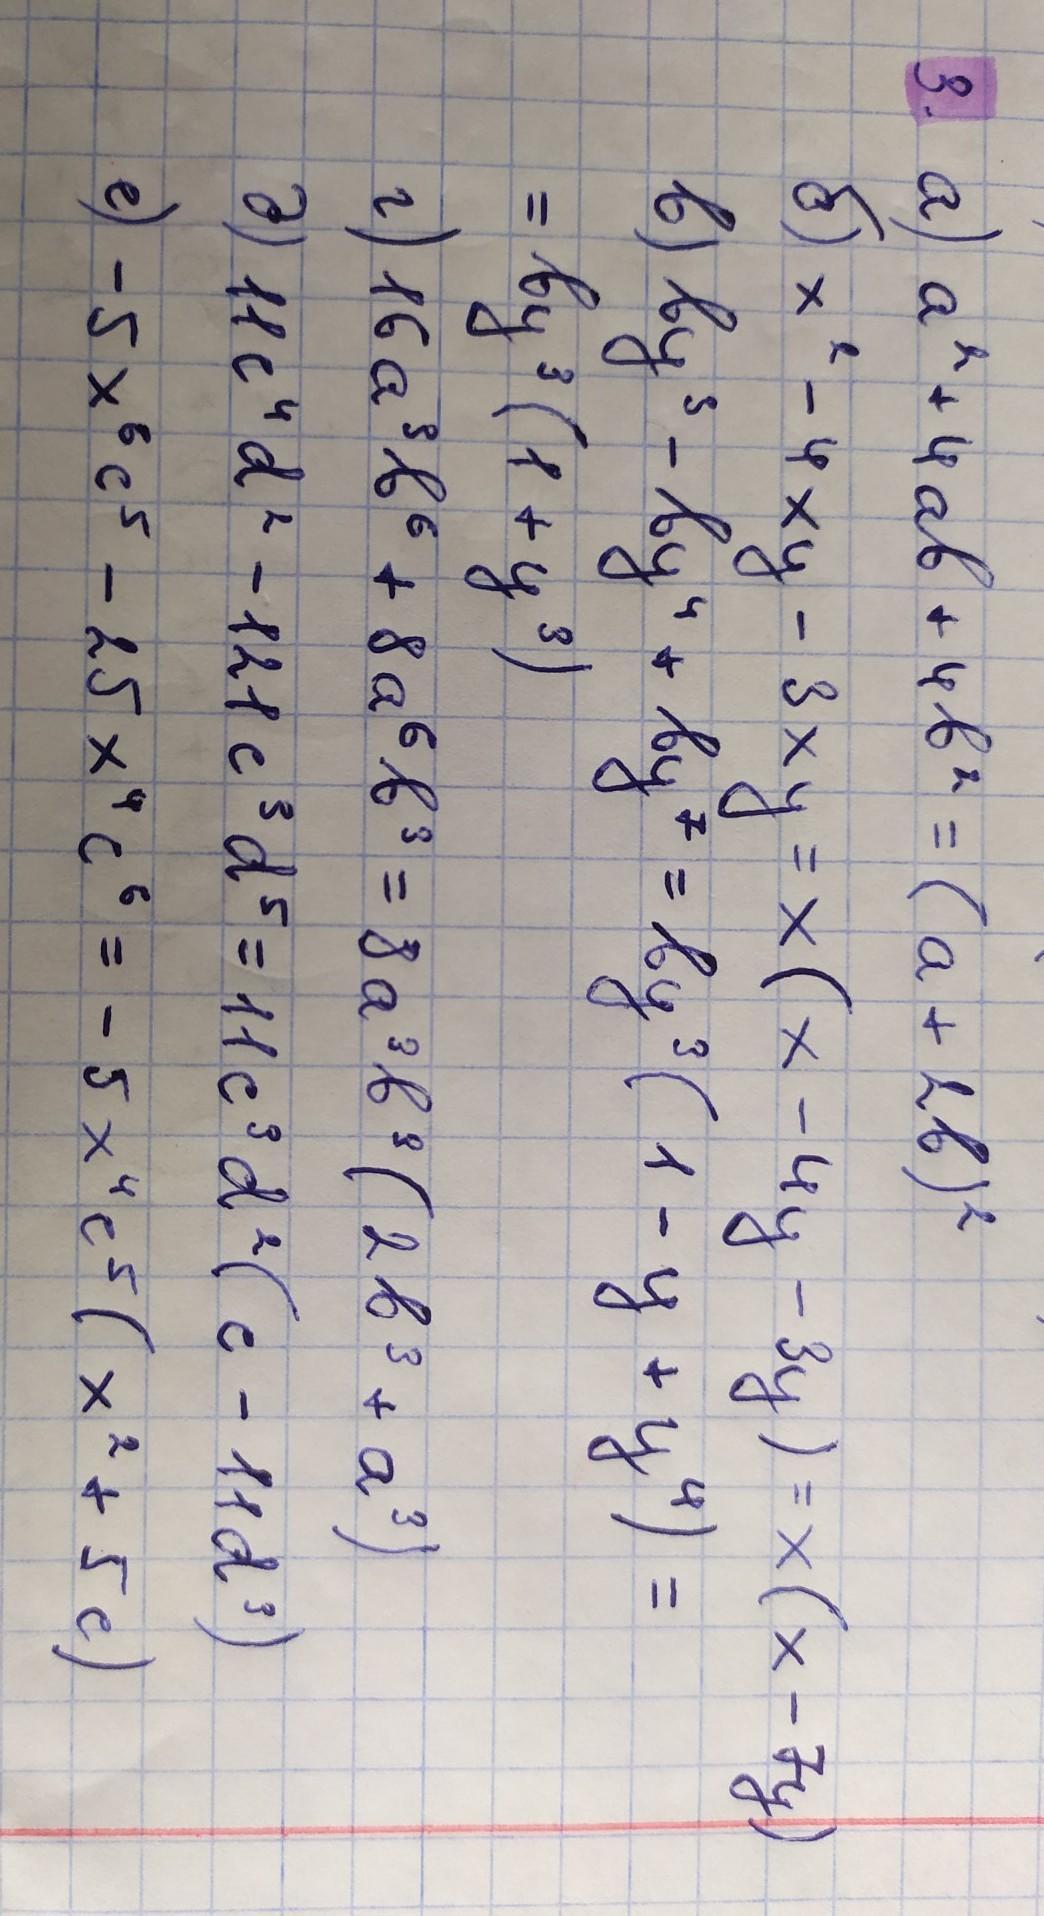 3. а) a² + 4ab + 4b² = (a + 2b)²
б) x² - 4xy - 3xy = x(x - 4y - 3y) = x(x - 7y)
в) by³ - by⁴ + by⁷ = by³(1 - y + y⁴) =
= by³(1 + y³)
г) 16a³b⁶ + 8a⁶b³ = 8a³b³(2b³ + a³)
д) 11c⁴d² - 121c³d⁵ = 11c³d²(c - 11d³)
е) -5x⁶c⁵ - 25x⁴c⁶ = -5x⁴c⁵(x² + 5c)